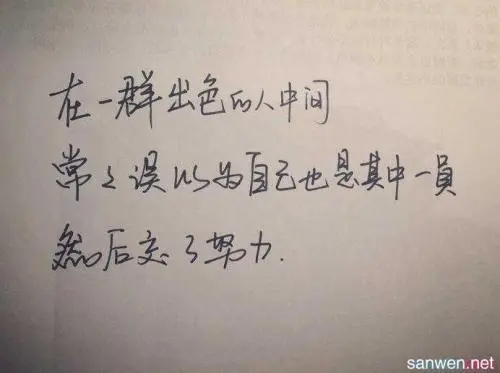 在一群出色的人中间
常々误以为自己也是其中一員
然后忘了努力.
sanwen.net